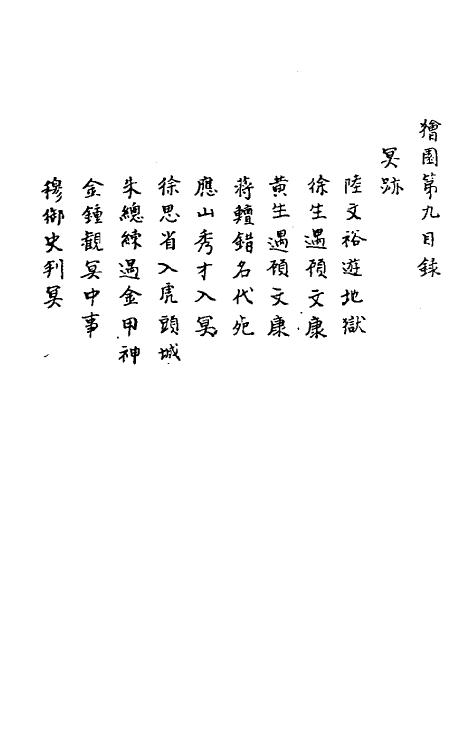 獪園第九目録
冥跡
陸文裕遊地獄
徐生遇顧文康
黄生遇顧文康
蒋轀錯名代死
應山秀才入冥
徐思省入虎頭城
朱總練遇金甲神
金鍾觀冥中事
穆御史判冥